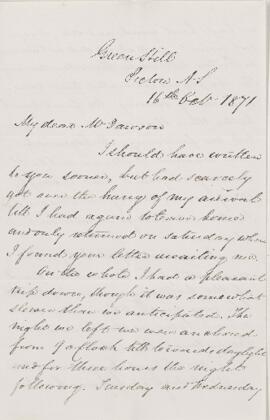 Green Hill
Pictou N.S
16th Octr 1871
My dear Mr Dawson
I should have written
to you sooner, but had scarcely
got over the hurry of my arrival
till I had again to leave home
and only returned on saturday when
I found your letter awaiting me.
On the whole I had a pleasant
trip down, though it was somewhat
slower than we anticipated. The
night we left we were anchored
from 9 o'clock till towards daylight
and for three hours the night
following. Tuesday and Wednesday